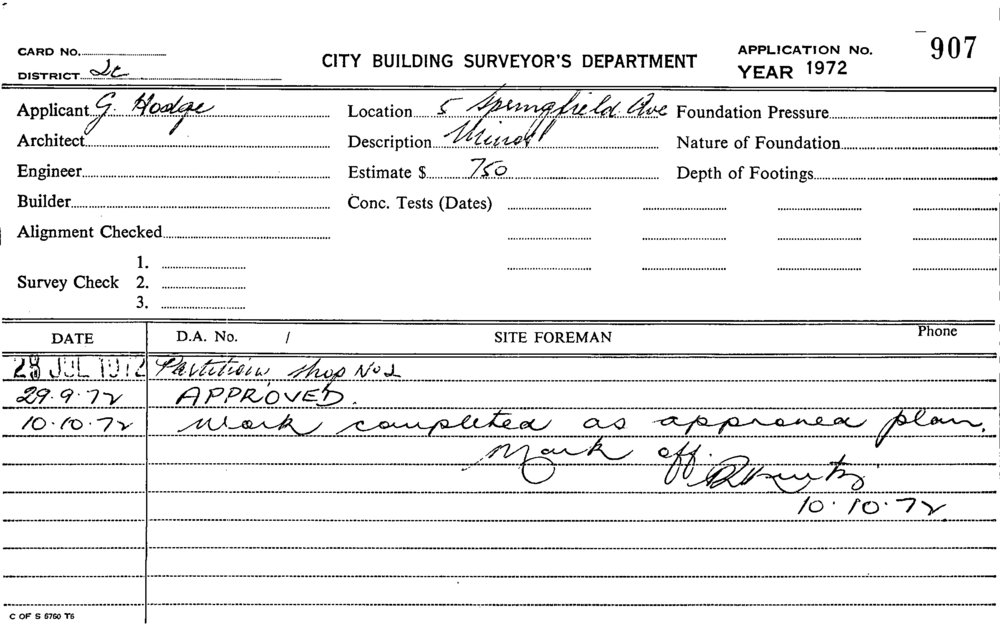 CARD No.
DISTRICT 2c
CITY BUILDING SURVEYOR'S DEPARTMENT
APPLICATION No. 907
YEAR 1972
Applicant G. Hodge
Location 5 Springfield Ave
Foundation Pressure
Architect
Description Minor
Nature of Foundation
Engineer
Estimate $ 750
Depth of Footings
Builder
Conc. Tests (Dates)
Alignment Checked
Survey Check 1.
2.
3.
DATE D.A. No. / SITE FOREMAN Phone
28 JUL 1972 Partition shop No 2
29.9.72 APPROVED.
10.10.72 Work completed as approved plan.
Mark off.
10.10.72
C OF S 6760 T6